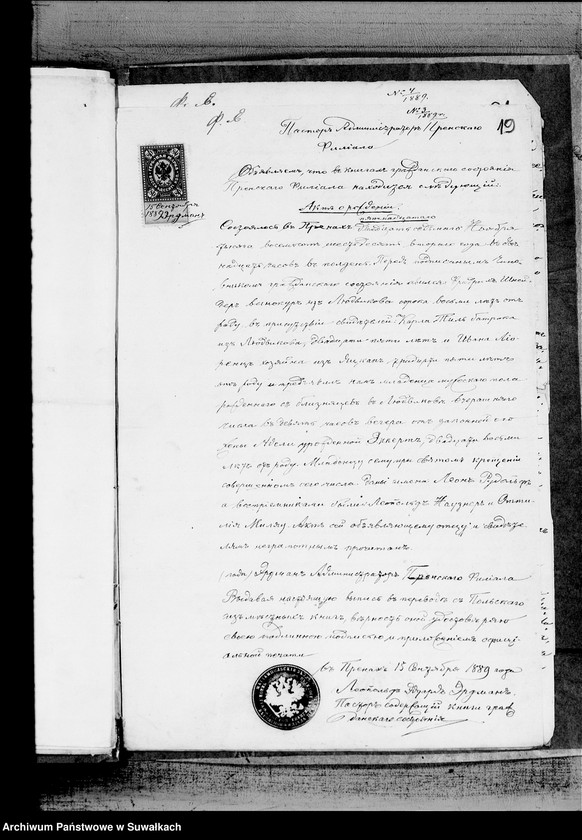 № 4
1889.
19
Пасторъ Администраторъ Пренскаго
Филіала
Объявляемъ, что въ книгахъ гражданскаго состоянія
Пренскаго Филіала находится слѣдующій:
Актъ о рожденіи
15 Сентября
1889 Эрдманъ
Состоялось въ Пренахъ Ноября
тысяча восемьсотъ шестьдесятъ втораго года въ две
надцать часовъ въ полдень. Передъ подписаннымъ Чинов
никомъ гражданскаго состоянія явился Фридрихъ Шней
деръ изъ Людвинова сорока восьми лѣтъ отъ
роду, въ присутствіи свидѣтелей Карла батрака
изъ Людвинова, двадцати пяти лѣтъ и Ивана
хозяина изъ тридцати пяти лѣтъ
отъ роду и предъявилъ намъ младенца мужскаго пола
рожденнаго съ близнецовъ въ Людвиновѣ вчерашняго
числа въ девять часовъ вечера отъ законной его
жены Адели урожденной Эккертъ, двадцати восьми
лѣтъ отъ роду. Младенцу сему при святомъ крещеніи
совершенномъ сего числа даны имена Леонъ Рудольфъ
а воспріемниками были Леопольдъ и Отти
лія Миляу. Актъ сей объявляющему отцу и свидѣте
лямъ неграмотнымъ прочитанъ.
(подп.) Эрдманъ Администраторъ Пренскаго Филіала
Выдавая настоящую выпись въ переводѣ съ Польскаго
изъ книгъ, вѣрность оной удостовѣряю
своею подлинною подписью и приложеніемъ оффиці
альной печати
въ Пренахъ 15 Сентября 1889 года
Леопольдъ Эдуардъ Эрдманъ.
Пасторъ содержащій книги граж
данскаго состоянія
Archiwum Państwowe w Suwałkach